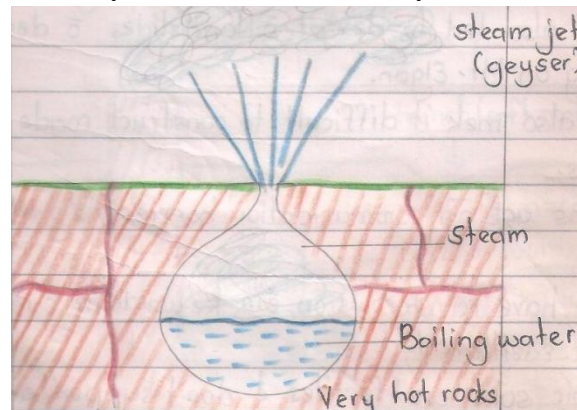 steam jet
(geyser)
steam
Boiling water
Very hot rocks